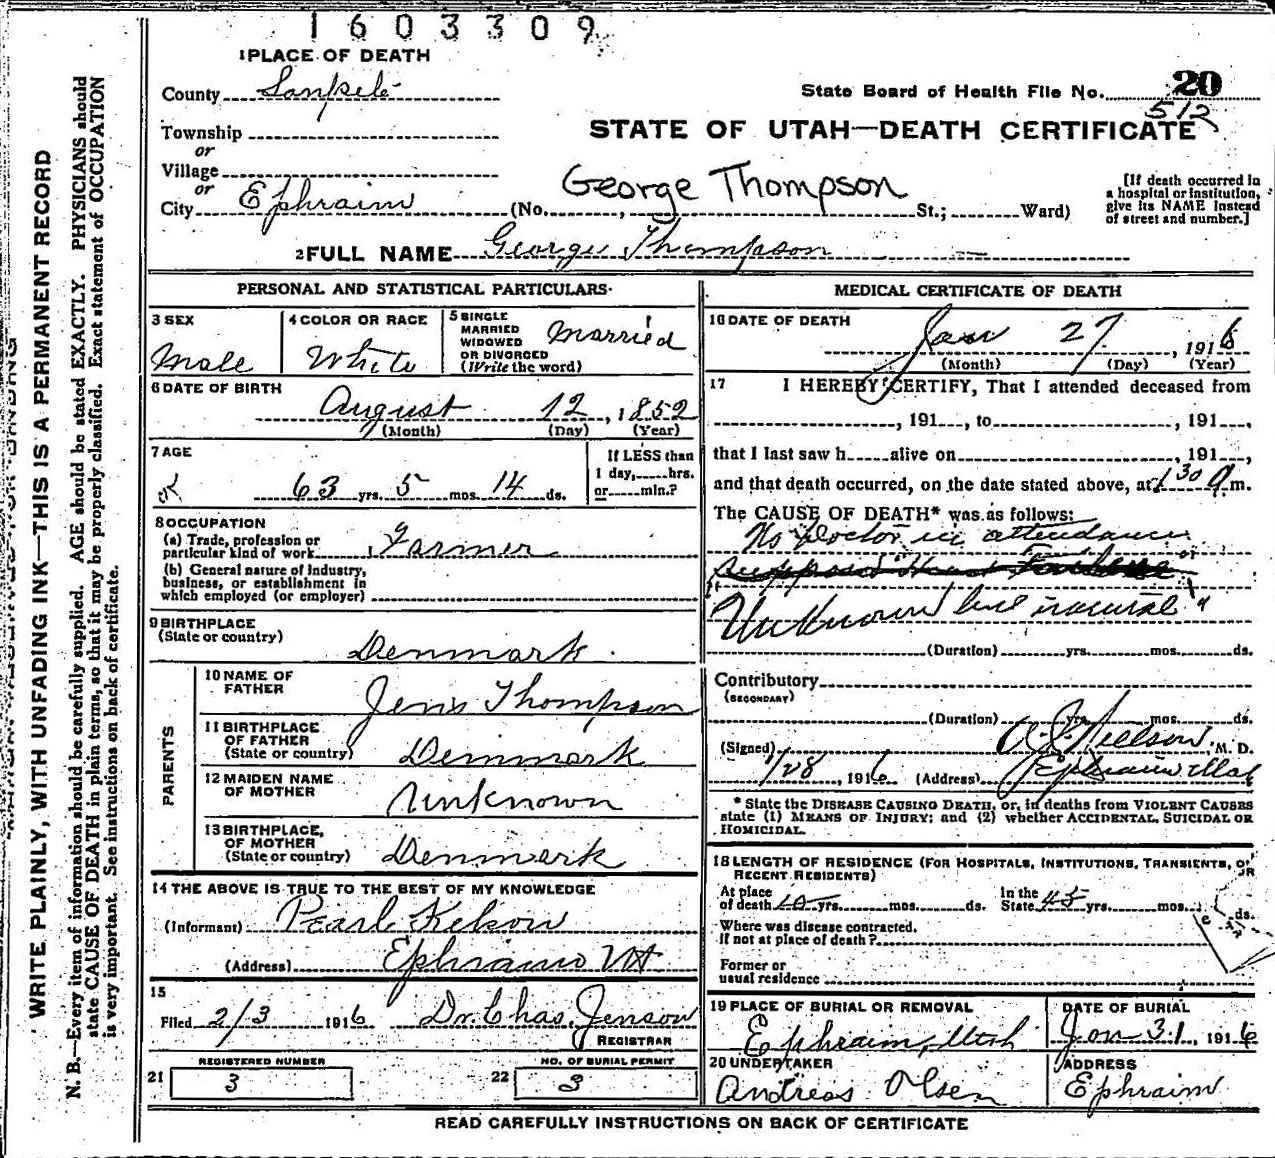 1603309
1 PLACE OF DEATH
County Sanpete
State Board of Health File No. 20
512
Township
or
STATE OF UTAH—DEATH CERTIFICATE
Village
or
George Thompson
City Ephraim (No. , St.; Ward)
[If death occurred in
a hospital or institution,
give its NAME instead
of street and number.]
2 FULL NAME George Thompson
PERSONAL AND STATISTICAL PARTICULARS
3 SEX
Male
4 COLOR OR RACE
White
5 SINGLE
MARRIED
WIDOWED
OR DIVORCED
(Write the word)
Married
6 DATE OF BIRTH
August 12, 1852
(Month) (Day) (Year)
7 AGE
63 yrs. 5 mos. 14 ds.
If LESS than
1 day, hrs.
or min.?
8 OCCUPATION
(a) Trade, profession or
particular kind of work Farmer
(b) General nature of industry,
business, or establishment in
which employed (or employer)
9 BIRTHPLACE
(State or country)
Denmark
PARENTS
10 NAME OF
FATHER
Jens Thompson
11 BIRTHPLACE
OF FATHER
(State or country) Denmark
12 MAIDEN NAME
OF MOTHER
Unknown
13 BIRTHPLACE,
OF MOTHER
(State or country) Denmark
14 THE ABOVE IS TRUE TO THE BEST OF MY KNOWLEDGE
(Informant) Pearl Kelson
(Address) Ephraim Ut
15
Filed 2/3 1916 Dr. Chas. Jenson
REGISTRAR
REGISTERED NUMBER
21 3
NO. OF BURIAL PERMIT
22 3
MEDICAL CERTIFICATE OF DEATH
16 DATE OF DEATH
Jan 27, 1916
(Month) (Day) (Year)
17 I HEREBY CERTIFY, That I attended deceased from
, 191 , to , 191 ,
that I last saw h alive on , 191 ,
and that death occurred, on the date stated above, at 1 30 a m.
The CAUSE OF DEATH* was as follows:
No Doctor in attendance
"Unknown but natural"
(Duration) yrs. mos. ds.
Contributory
(SECONDARY)
(Duration) yrs. mos. ds.
(Signed) Nielson M. D.
1/28, 1916 (Address) Ephraim Utah
* State the DISEASE CAUSING DEATH, or, in deaths from VIOLENT CAUSES
state (1) MEANS OF INJURY; and (2) whether ACCIDENTAL, SUICIDAL OR
HOMICIDAL.
18 LENGTH OF RESIDENCE (FOR HOSPITALS, INSTITUTIONS, TRANSIENTS, OR
RECENT RESIDENTS)
At place
of death yrs. mos. ds.
In the
State 45 yrs. mos. ds.
Where was disease contracted,
if not at place of death?
Former or
usual residence
19 PLACE OF BURIAL OR REMOVAL
Ephraim, Utah
DATE OF BURIAL
Jan 31, 1916
20 UNDERTAKER
Andreas Olsen
ADDRESS
Ephraim
READ CAREFULLY INSTRUCTIONS ON BACK OF CERTIFICATE
WRITE PLAINLY, WITH UNFADING INK—THIS IS A PERMANENT RECORD
N. B.—Every item of information should be carefully supplied. AGE should be stated EXACTLY. PHYSICIANS should
state CAUSE OF DEATH in plain terms, so that it may be properly classified. Exact statement of OCCUPATION
is very important. See instructions on back of certificate.